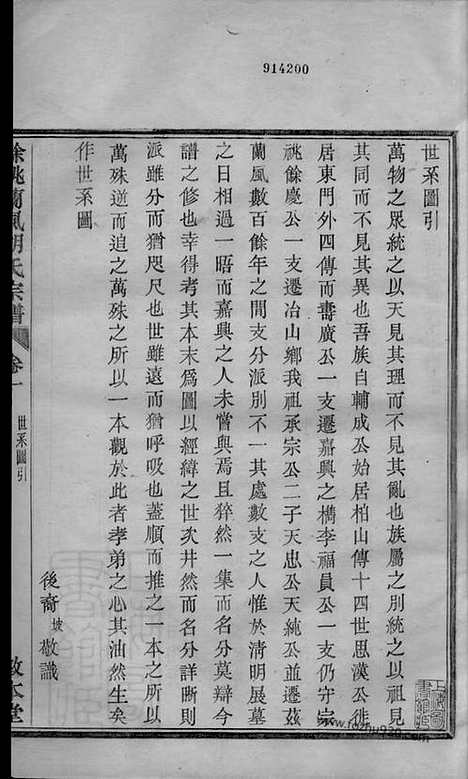 914200
世系圖引
萬物之眾統之以天見其理而不見其亂也族屬之別統之以祖見
其同而不見其異也吾族自輔成公始居柏山傳十四世思漢公徙
居東門外四傳而壽廣公一支遷嘉興之檇李福員公一支仍守宗
祧餘慶公一支遷冶山鄉我祖承宗公二子天忠公天純公並遷茲
蘭風數百餘年之間支分派別不一其處數支之人惟於清明展墓
之日相過一晤而嘉興之人未嘗與焉且猝然一集而名分莫辯今
譜之修也幸得考其本末為圖以經緯之世次井然而名分詳晰則
派雖分而猶咫尺也世雖遠而猶呼吸也蓋順而推之一本而之
萬殊逆而追之萬殊之所以一本觀於此者孝弟之心其油然生矣
作世系圖
後裔坡敬識
餘姚蘭風胡氏宗譜 卷一 世系圖引 敦本堂